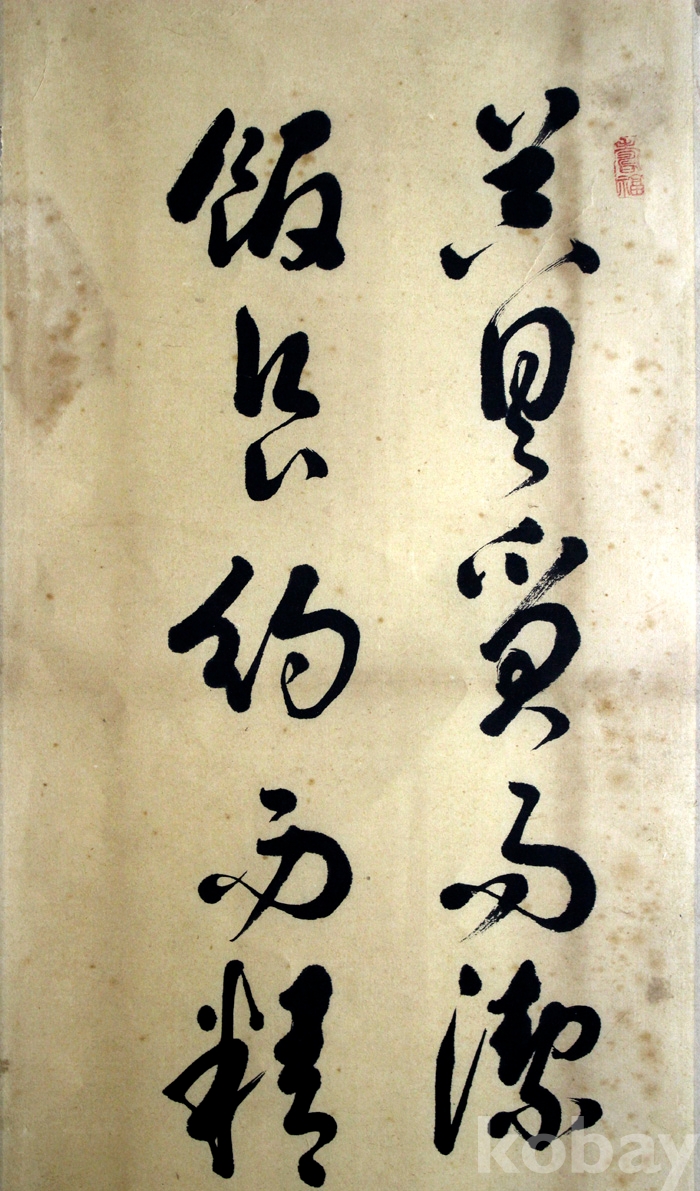 器具質而潔
飲食約而精
kobay